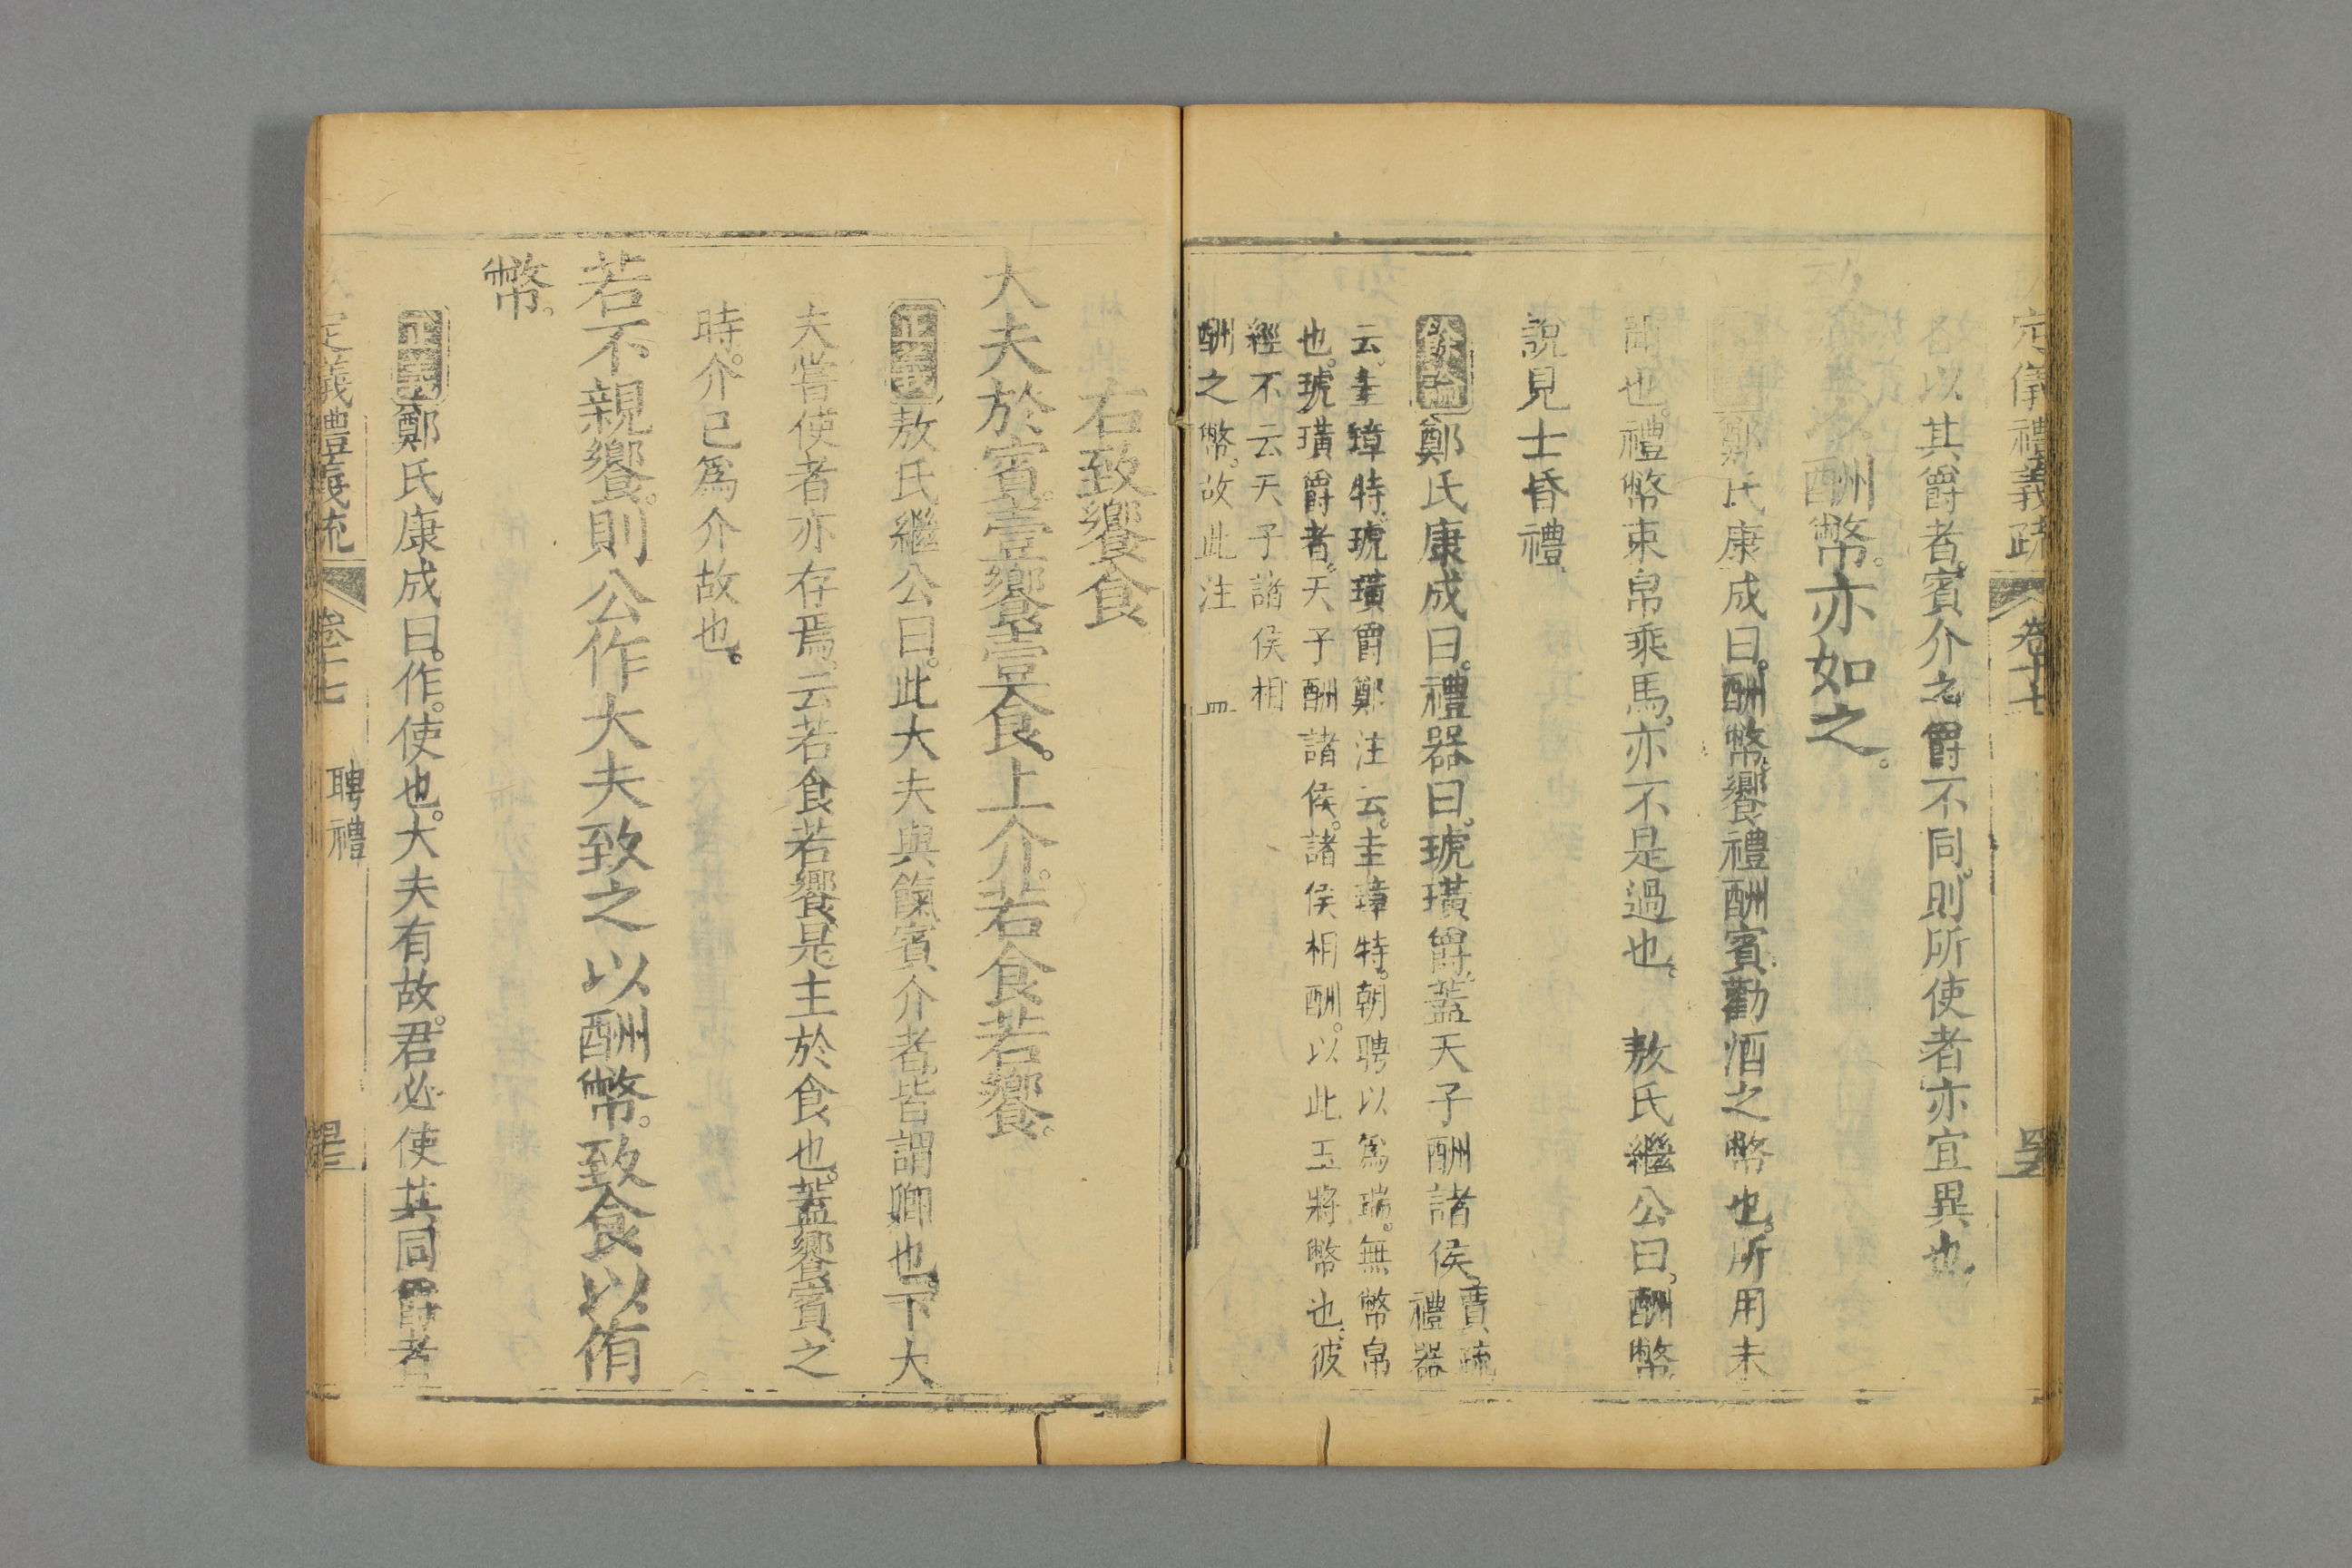 定儀禮義疏 卷十七
各以其爵者。賓介之爵不同。則所使者亦宜異也。
致饗以酬幣。亦如之。
正義鄭氏康成曰。酬幣。饗禮酬賓。勸酒之幣也。所用未
聞也。禮幣束帛乘馬。亦不是過也。 敖氏繼公曰。酬幣
說見士昏禮。
餘論鄭氏康成曰。禮器曰。琥璜爵。蓋天子酬諸侯。賈疏
禮器
云。圭璋特。琥璜爵。鄭注云。圭璋特。朝聘以爲瑞。無幣帛
也。琥璜爵者。天子酬諸侯。諸侯相酬。以此玉將幣也。彼
經不云天子諸侯相
酬之幣。故此注
右致饗食
大夫於賓。壹饗壹食。上介。若食若饗。
正義敖氏繼公曰。此大夫與餼賓介者。皆謂卿也。下大
夫嘗使者亦存焉。云若食若饗。是主於食也。蓋饗賓之
時。介已爲介故也。
若不親饗。則公作大夫致之以酬幣。致食以侑
幣。
正義鄭氏康成曰。作。使也。大夫有故。君必使其同爵者
定儀禮義疏 卷十七 聘禮